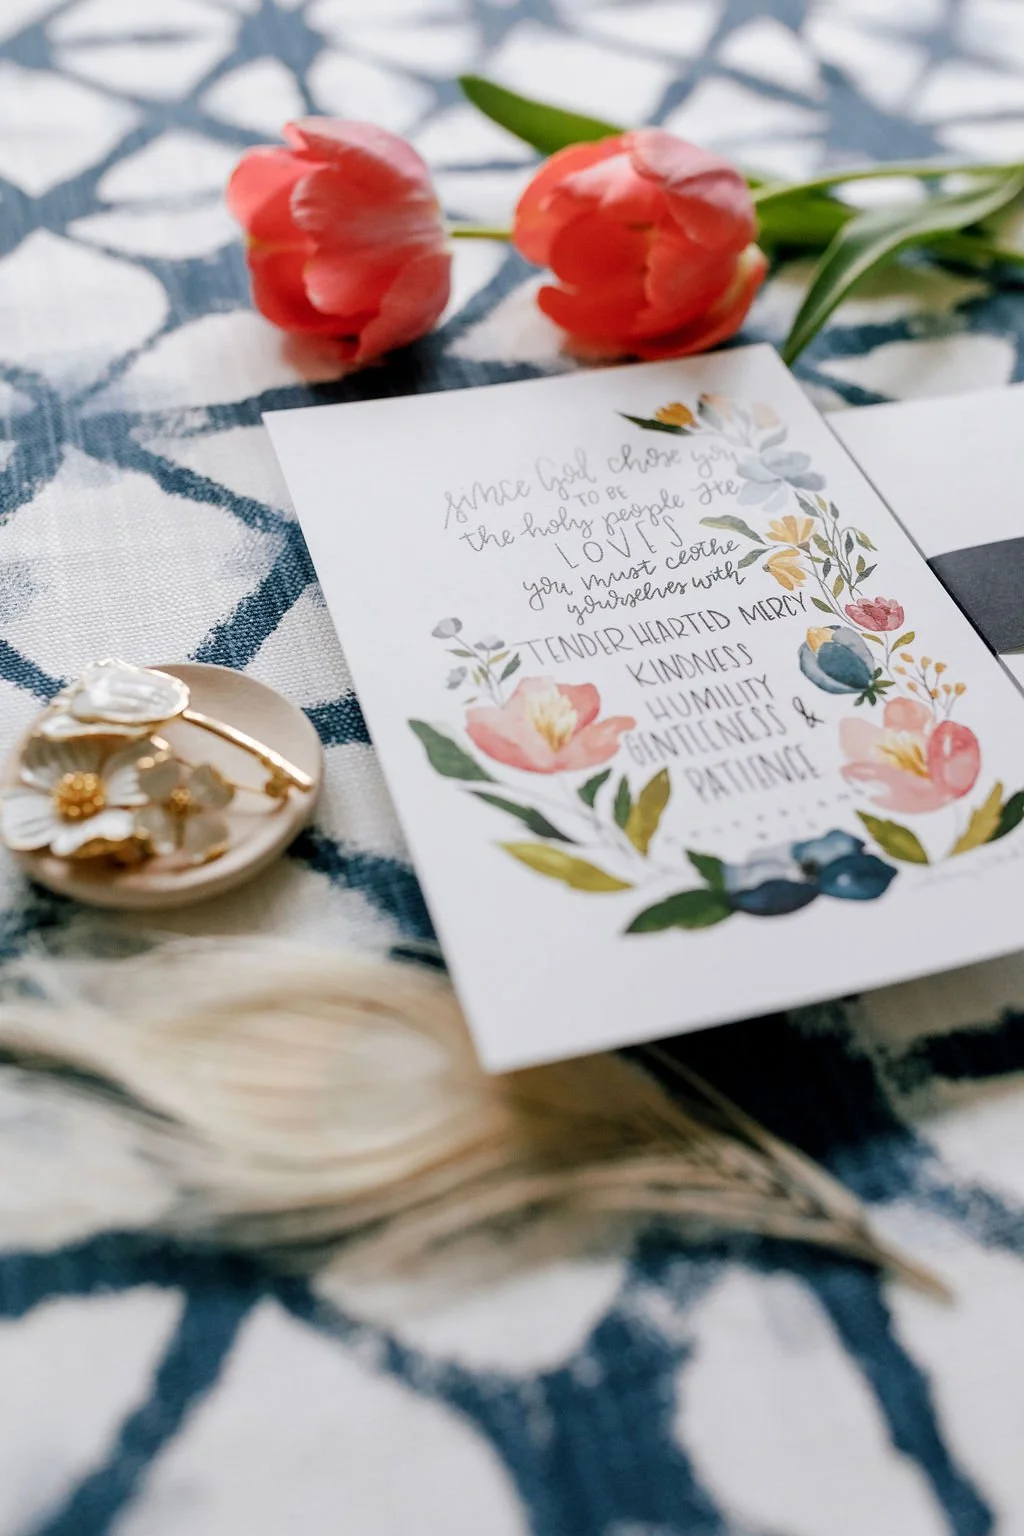 since God chose you
TO BE
the holy people He
LOVES
you must clothe
yourselves with
TENDER HEARTED MERCY
KINDNESS
HUMILITY
GENTLENESS &
PATIENCE